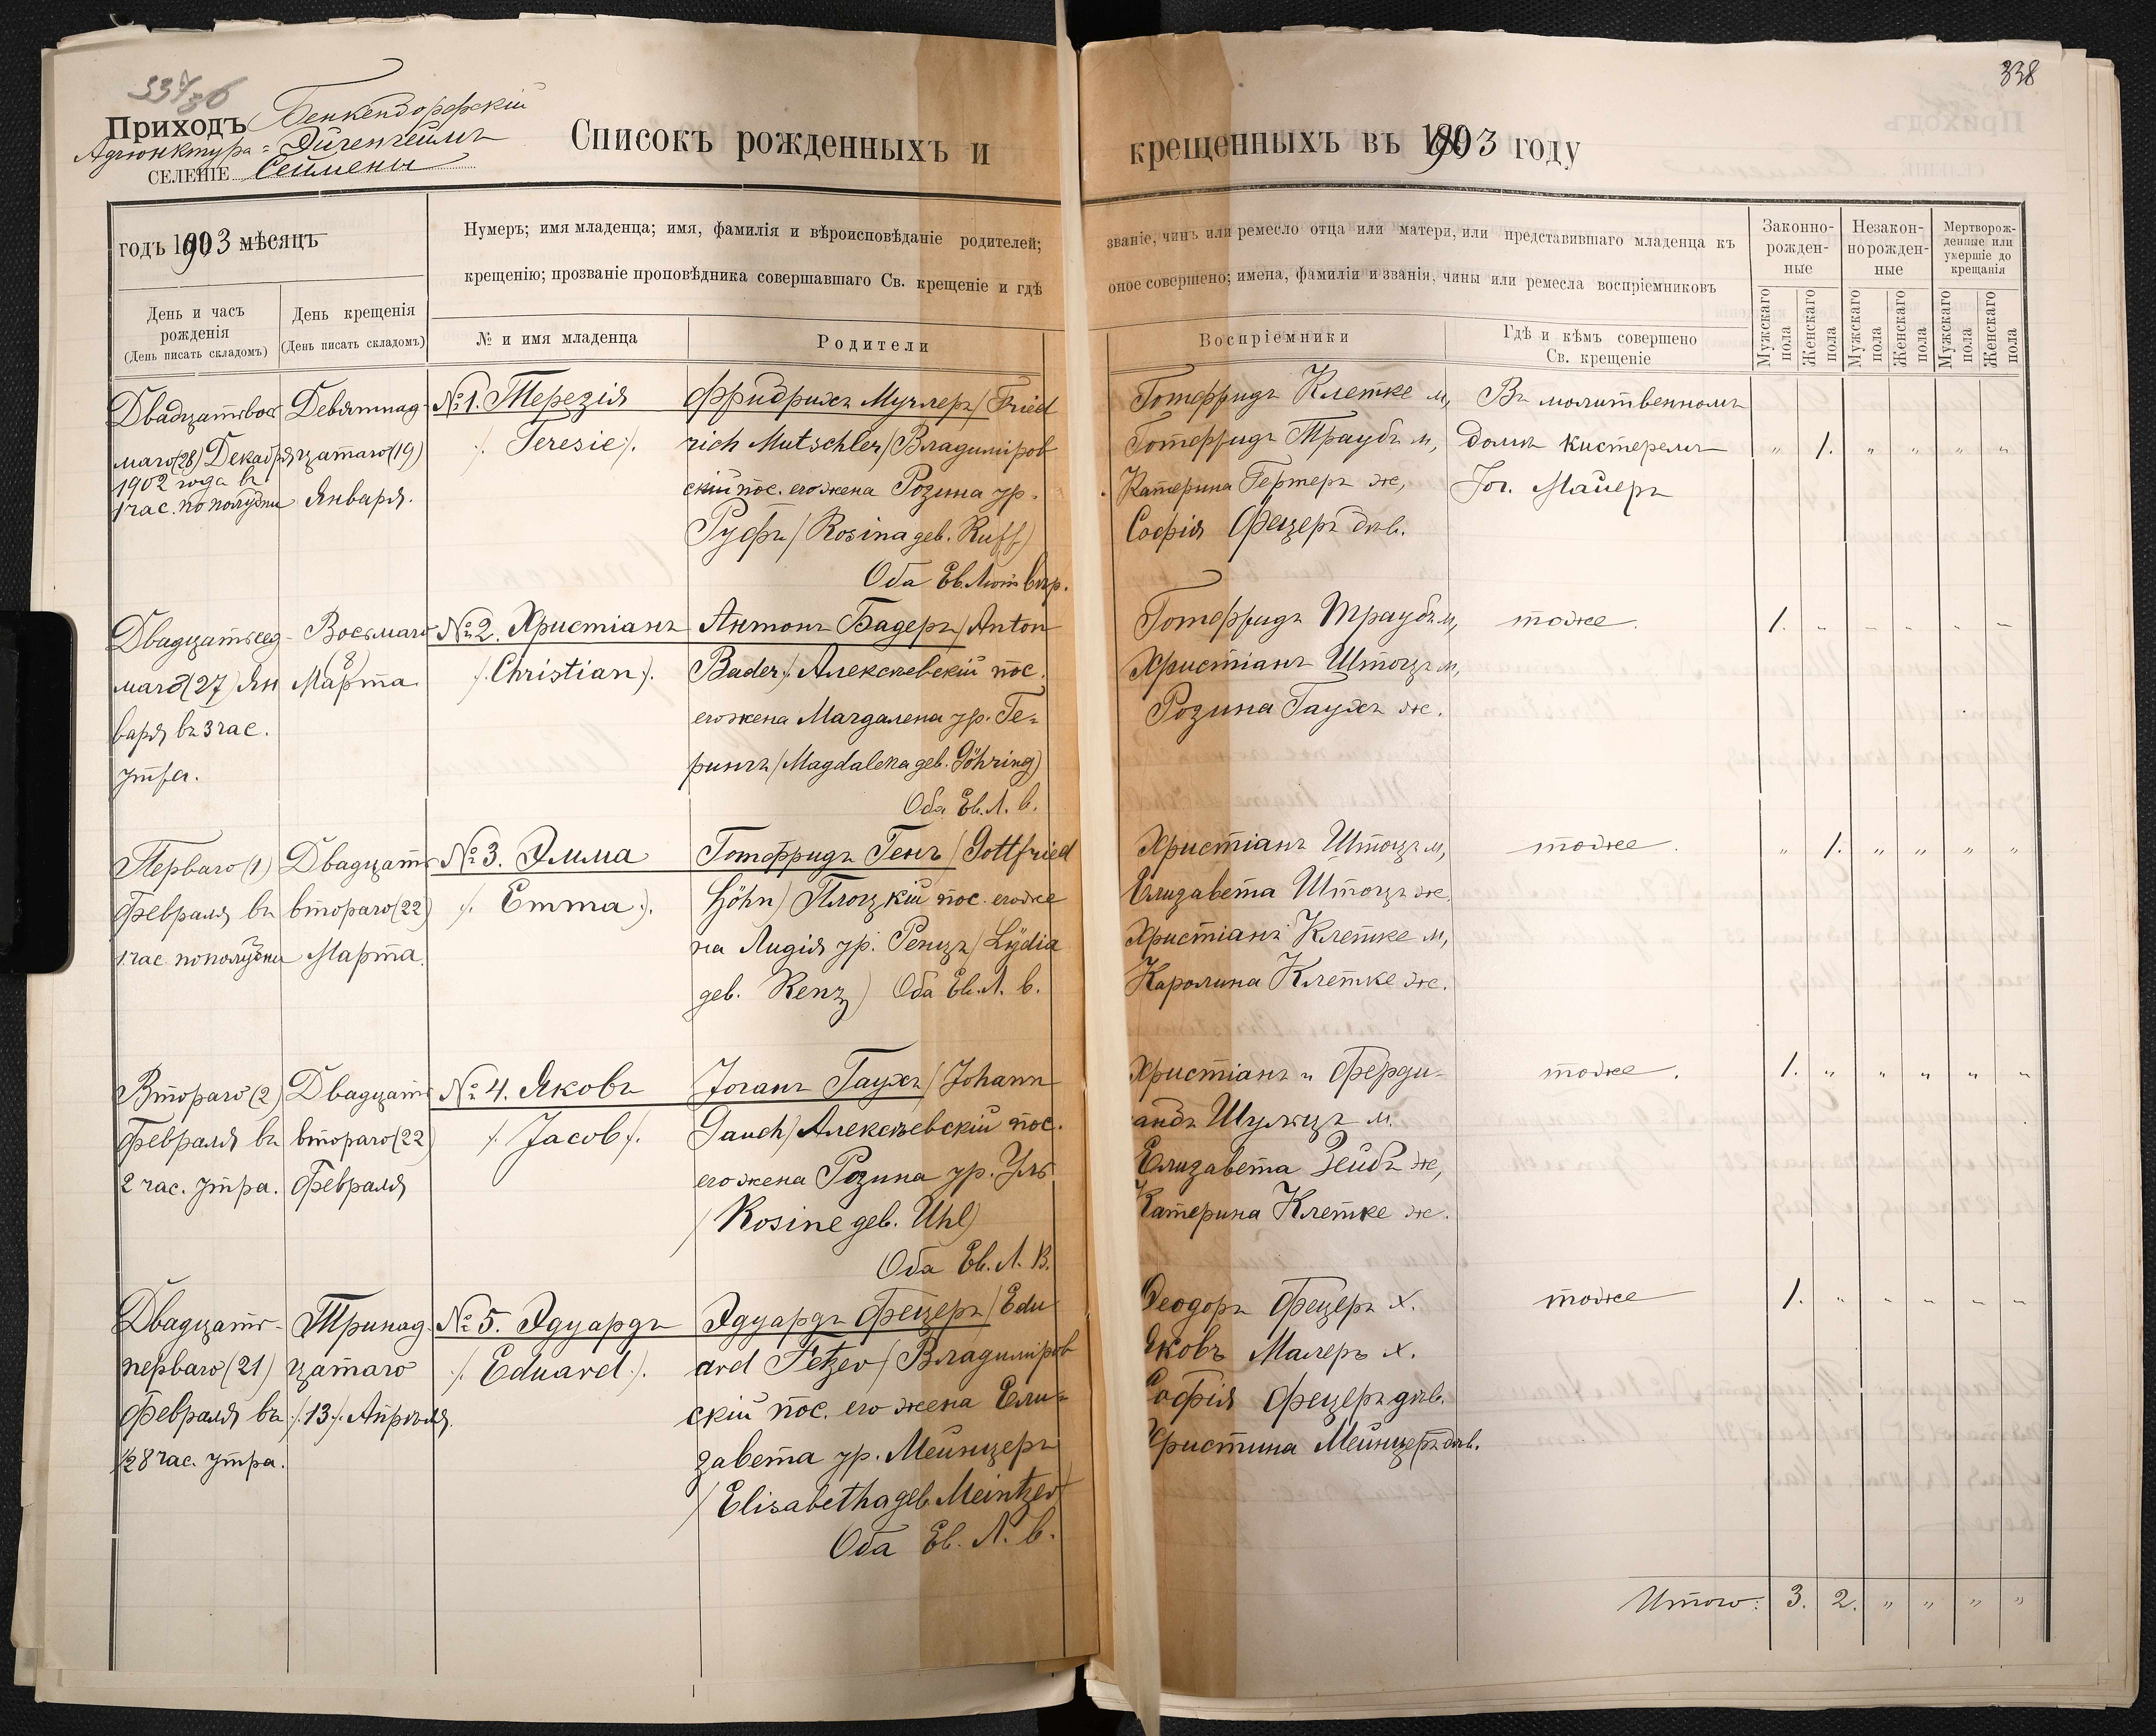 338
Приходъ Бенкендорфскій
Адъюнктура= Эйгенгеймъ
СЕЛЕНІЕ Сеймены
Списокъ рожденныхъ и крещенныхъ въ 1903 году
годъ 1903 мѣсяцъ
Нумеръ; имя младенца; имя, фамилія и вѣроисповѣданіе родителей; званіе, чинъ или ремесло отца или матери, или представившаго младенца къ
крещенію; прозваніе проповѣдника совершавшаго Св. крещеніе и гдѣ оное совершено; имена, фамиліи и званія, чины или ремесла воспріемниковъ
Законно-
рожден-
ные
Незакон-
норожден-
ные
Мертворож-
денные или
умершіе до
крещанія
День и часъ
рожденія
(День писать складомъ)
День крещенія
(День писать складомъ)
№ и имя младенца
Родители
Воспріемники
Гдѣ и кѣмъ совершено
Св. крещеніе
Мужскаго
пола
Женскаго
пола
Мужскаго
пола
Женскаго
пола
Мужскаго
пола
Женскаго
пола
Двадцатьвось
маго (28) Декабря
1902 года въ
1 час. по полудни
Девятнад-
цатаго (19)
Января.
№ 1. Терезія
/. Teresie/.
Фридрихъ Мучлеръ / Fried
rich Mutschler / Владиміров
скій пос. его жена Розина ур.
Руфъ / Rosina geb. Ruff)
Оба Ев. Лют Вѣр.
Готфридъ Клетке м,
Готфридъ Траубъ м,
Катерина Гертеръ ж,
Софія Фецеръ дѣв.
Въ молитвенномъ
домѣ кистеремъ
Іог. Майеръ
„ 1. „ „ „ „
Двадцатьсед-
маго (27) Ян
варя въ 3 час.
утра.
Восьмаго
(8)
Марта
№ 2. Христіанъ
/. Christian /.
Антонъ Бадеръ / Anton
Bader /. Алексѣевскій пос.
его жена Магдалена ур. Ге=
рингъ / Magdalena geb. Göhring)
Оба Ев. Л. в.
Готфридъ Траубъ м,
Христіанъ Штоцъ м,
Розина Гаухъ ж.
тоже.
1. „ „ „ „ „
Перваго (1)
Февраля въ
1 час пополудни
Двадцать
втораго (22)
Марта.
№ 3. Эмма
/. Emma /.
Готфридъ Генъ / Gottfried
Höhn) Плоцкій пос. его же
на Лидія ур. Ренцъ / Lÿdia
geb. Renz) Оба Ев. Л. в.
Христіанъ Штоцъ м,
Елизавета Штоцъ ж.
Христіанъ Клетке м,
Каролина Клетке ж.
тоже.
„ 1. „ „ „ „
Втораго (2)
Февраля въ
2 час. утра.
Двадцать
втораго (22)
Февраля
№ 4. Яковъ
/. Jacob /.
Іоганъ Гаухъ / Johann
Gauch / Алексѣевскій пос.
его жена Розина ур. Уль
/ Rosine geb. Uhl)
Оба Ев. Л. В.
Христіанъ и Ферди-
андъ Шульцъ м.
Елизавета Зейбъ ж,
Катерина Клетке ж.
тоже.
1. „ „ „ „ „
Двадцать-
перваго (21)
Февраля въ
½8 час. утра.
Тринад-
цатаго
/. 13 /. Апрѣля.
№ 5. Эдуардъ
/. Eduard /.
Эдуардъ Фецеръ / Edu
ard Fetzer / Владиміров
скій пос. его жена Ели=
завета ур. Мейнцеръ
/ Elisabetha geb. Meintzer
Оба Ев. Л. в.
Феодоръ Фецеръ х.
Яковъ Малеръ х.
Софія Фецеръ дѣв.
Христина Мейнцеръ дѣв.
тоже
1. „ „ „ „ „
Итого: 3. 2. „ „ „ „